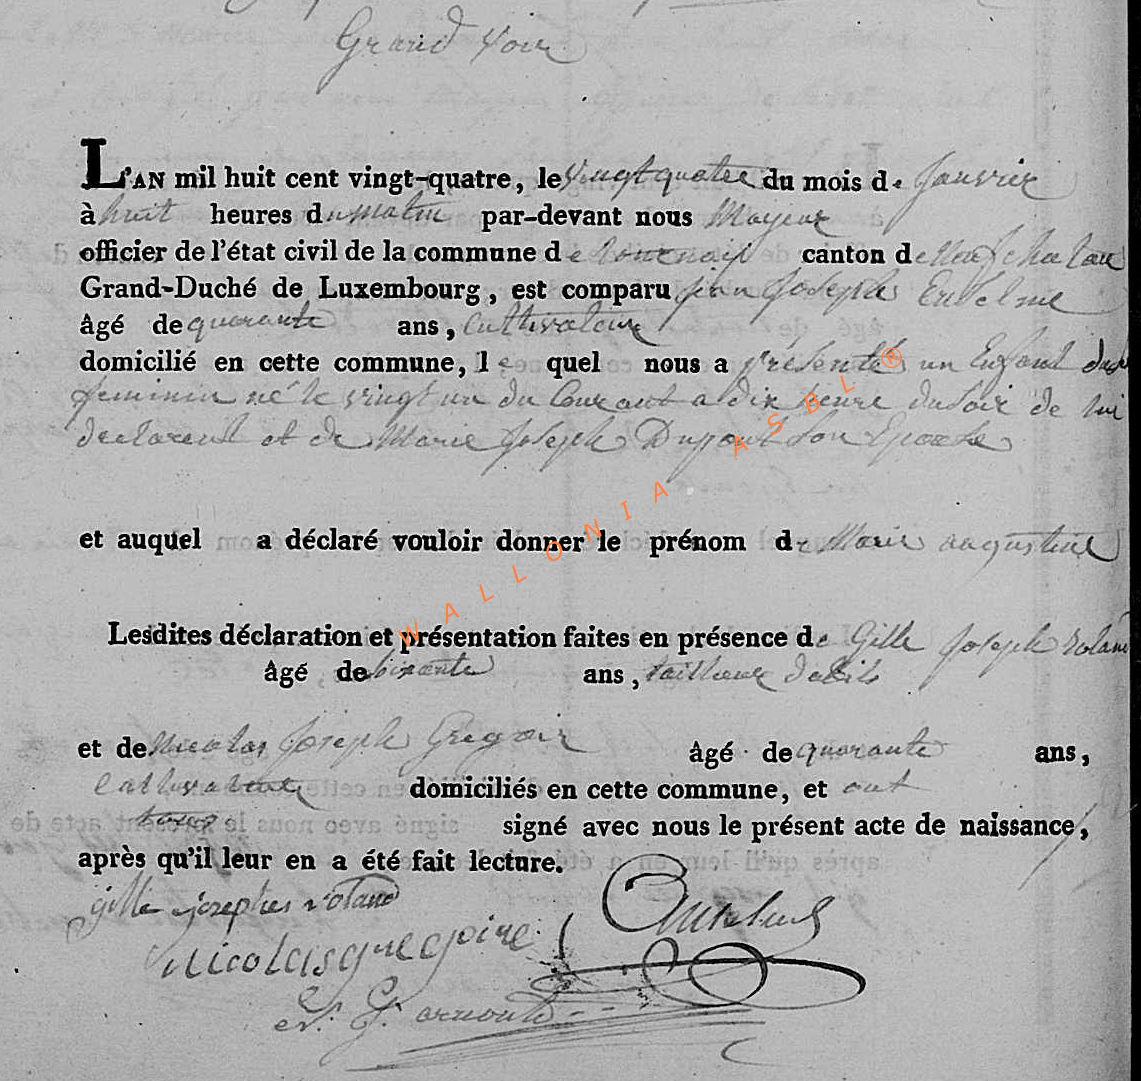 Grand Voir
L'AN mil huit cent vingt-quatre, le vingt quatre du mois de Janvier
à huit heures du matin par-devant nous Mayeur
officier de l'état civil de la commune de tournay canton de Neufchateau
Grand-Duché de Luxembourg, est comparu jean Joseph
âgé de quarante ans, Cultivateur
domicilié en cette commune, le quel nous a présenté un Enfant du
feminin né le vingt un du Courant a dix heure du soir de lui
declarent et de Marie Joseph Dupont son Epouse
et auquel a déclaré vouloir donner le prénom de Marie augustine
Lesdites déclaration et présentation faites en présence de Gille Joseph roland
âgé de soixante ans, tailleur dabits
et de Nicolas Joseph Gregoir âgé de quarante ans,
Cultivateur domiciliés en cette commune, et ont
tous signé avec nous le présent acte de naissance,
après qu'il leur en a été fait lecture.
gille josephes roland
Nicolas gregoire
arnould
WALLONIA ASBL ®